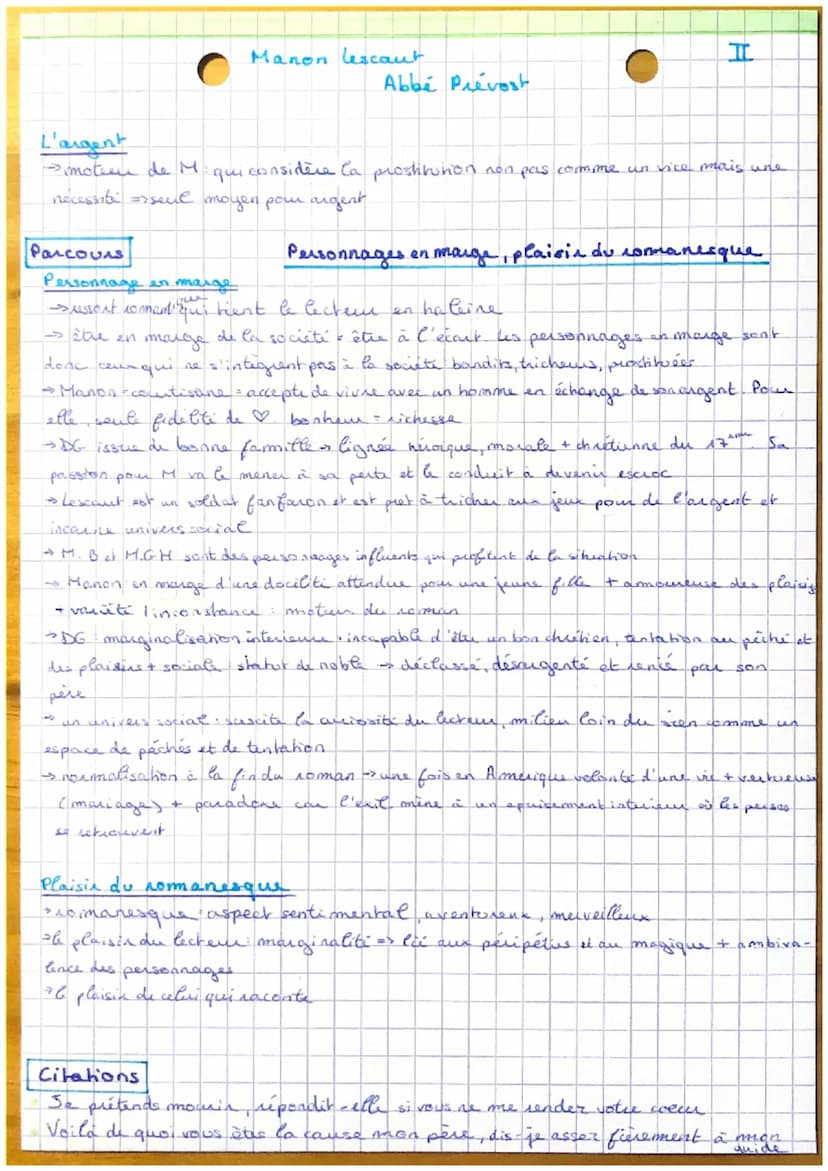 Manon Lescaut
II
Abbé Prévost
L'argent
→ moteur de M : qui considère la prostitution non pas comme un vice mais une
nécessité => seul moyen pour argent
Parcours
Personnages en marge, plaisir du romanesque
Personnage en marge
→ ressort romantique qui tient le lecteur en haleine
→ être en marge de la société = être à l'écart. Les personnages en marge sont
donc ceux qui ne s'intègrent pas à la société bandits, tricheurs, prostituées
→ Manon = courtisane = accepte de vivre avec un homme en échange de son argent. Pour
elle, seule fidélité de ♡ bonheur = richesse
→ DG issue de bonne famille → lignée héroïque, morale + chrétienne du 17ème. Sa
passion pour M va le mener à sa perte et le conduit à devenir escroc
→ Lescaut est un soldat fanfaron et est pret à tricher aux jeux pour de l'argent et
incarne univers social
→ M. B et M.GM sont des personnages influents qui profitent de la situation
→ Manon en marge d'une docilité attendue pour une jeune fille + amoureuse des plaisirs
+ variété l'inconstance : moteur du roman
→ DG : marginalisation interieure : incapable d'être un bon chrétien, tentation au péché et
des plaisirs + sociale : statut de noble → déclassé, désargenté et renié par son
père
→ un univers social : suscite la curiosité du lecteur, milieu loin du sien comme un
espace de péchés et de tentation
→ normalisation à la fin du roman → une fois en Amerique volonté d'une vie + vertueuse
(mariage) + paradoxe car l'exil mène à un épuisement interieur où les persos
se retrouvent
Plaisir du romanesque
→ romanesque : aspect sentimental, aventureux, merveilleux
→ le plaisir du lecteur : marginalité => lié aux péripéties et au magique + ambiva-
lence des personnages
→ le plaisir de celui qui raconte
Citations
Je prétends mourir, répondit-elle si vous ne me rendez votre coeur
Voilà de quoi vous êtes la cause mon père, dis-je assez fièrement à mon
guide